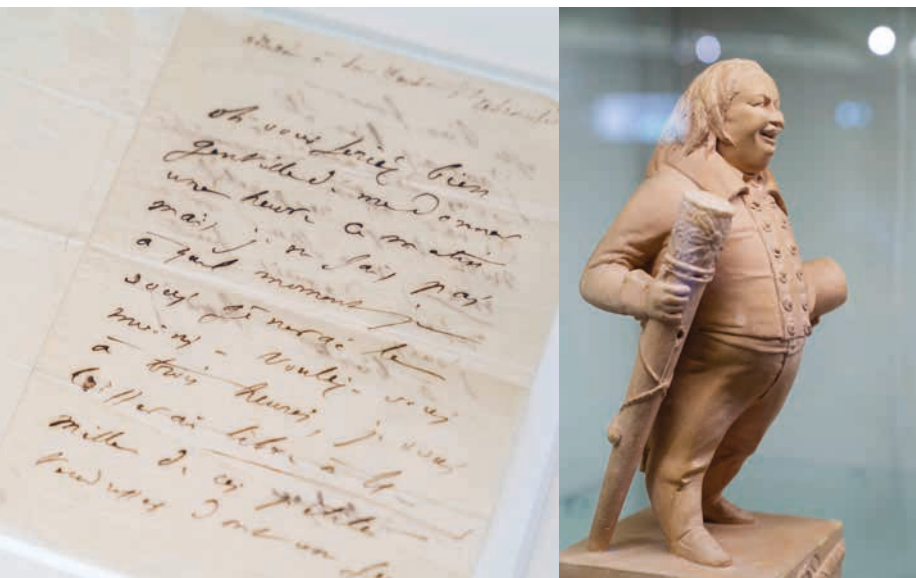 oh vous seriez bien
gentille de me donner
une heure ce matin
mais je ne sais pas
à quel moment je
vous gênerai le
moins - voulez-vous
à trois heures, je vous
laisserai libre à
mille de ces petites
tendresses dont on